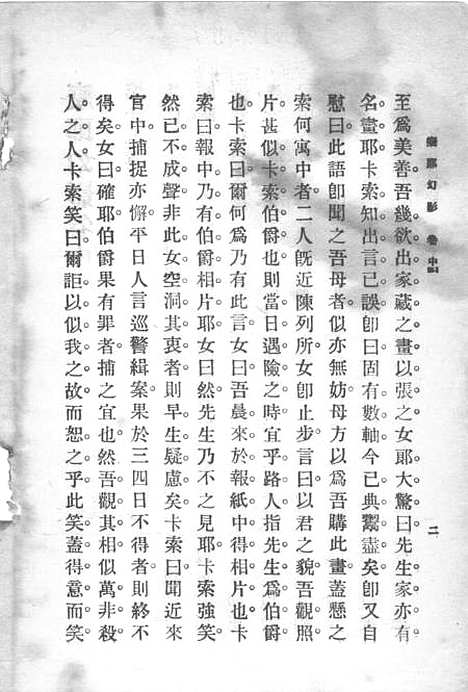 幻影 卷中
二
至爲美善吾幾欲出家藏之畫以張之女郎大驚曰先生家亦有
名畫耶卡索知出言已誤卽曰固有數軸今已典鬻盡矣卽又自
慰曰此語卽聞之吾母者似亦無妨母方以爲吾購此畫蓋懸之
索何寓中者二人旣近陳列所女卽止步言曰以君之貌吾觀照
片甚似卡索伯爵也則當日遇險之時宜乎路人指先生爲伯爵
也卡索曰爾何爲乃有此言女曰吾晨來於報紙中得之耶卡
索曰報中乃有伯爵相片耶女曰然先生乃不之見耶卡索強笑
然已不成聲非此女空洞其衷者則早生疑慮矣卡索曰聞近來
官中捕捉亦懈平日人言巡警緝案果於三四日不得者則終不
得矣女曰確耶伯爵果有罪者捕之宜也然吾觀其相似萬非殺
人之人卡索笑曰爾詎以似我之故而恕之乎此笑蓋得意而笑